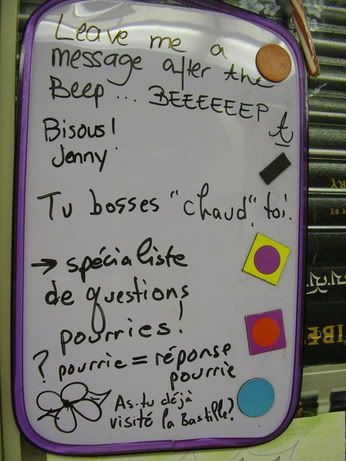 Leave me a
message after the
Beep... BEEEEEEP
Bisous!
Jenny
Tu bosses "chaud" toi.
→ spécialiste
de questions
pourries!
? pourrie = réponse
pourrie
As-tu déjà
visité la Bastille?